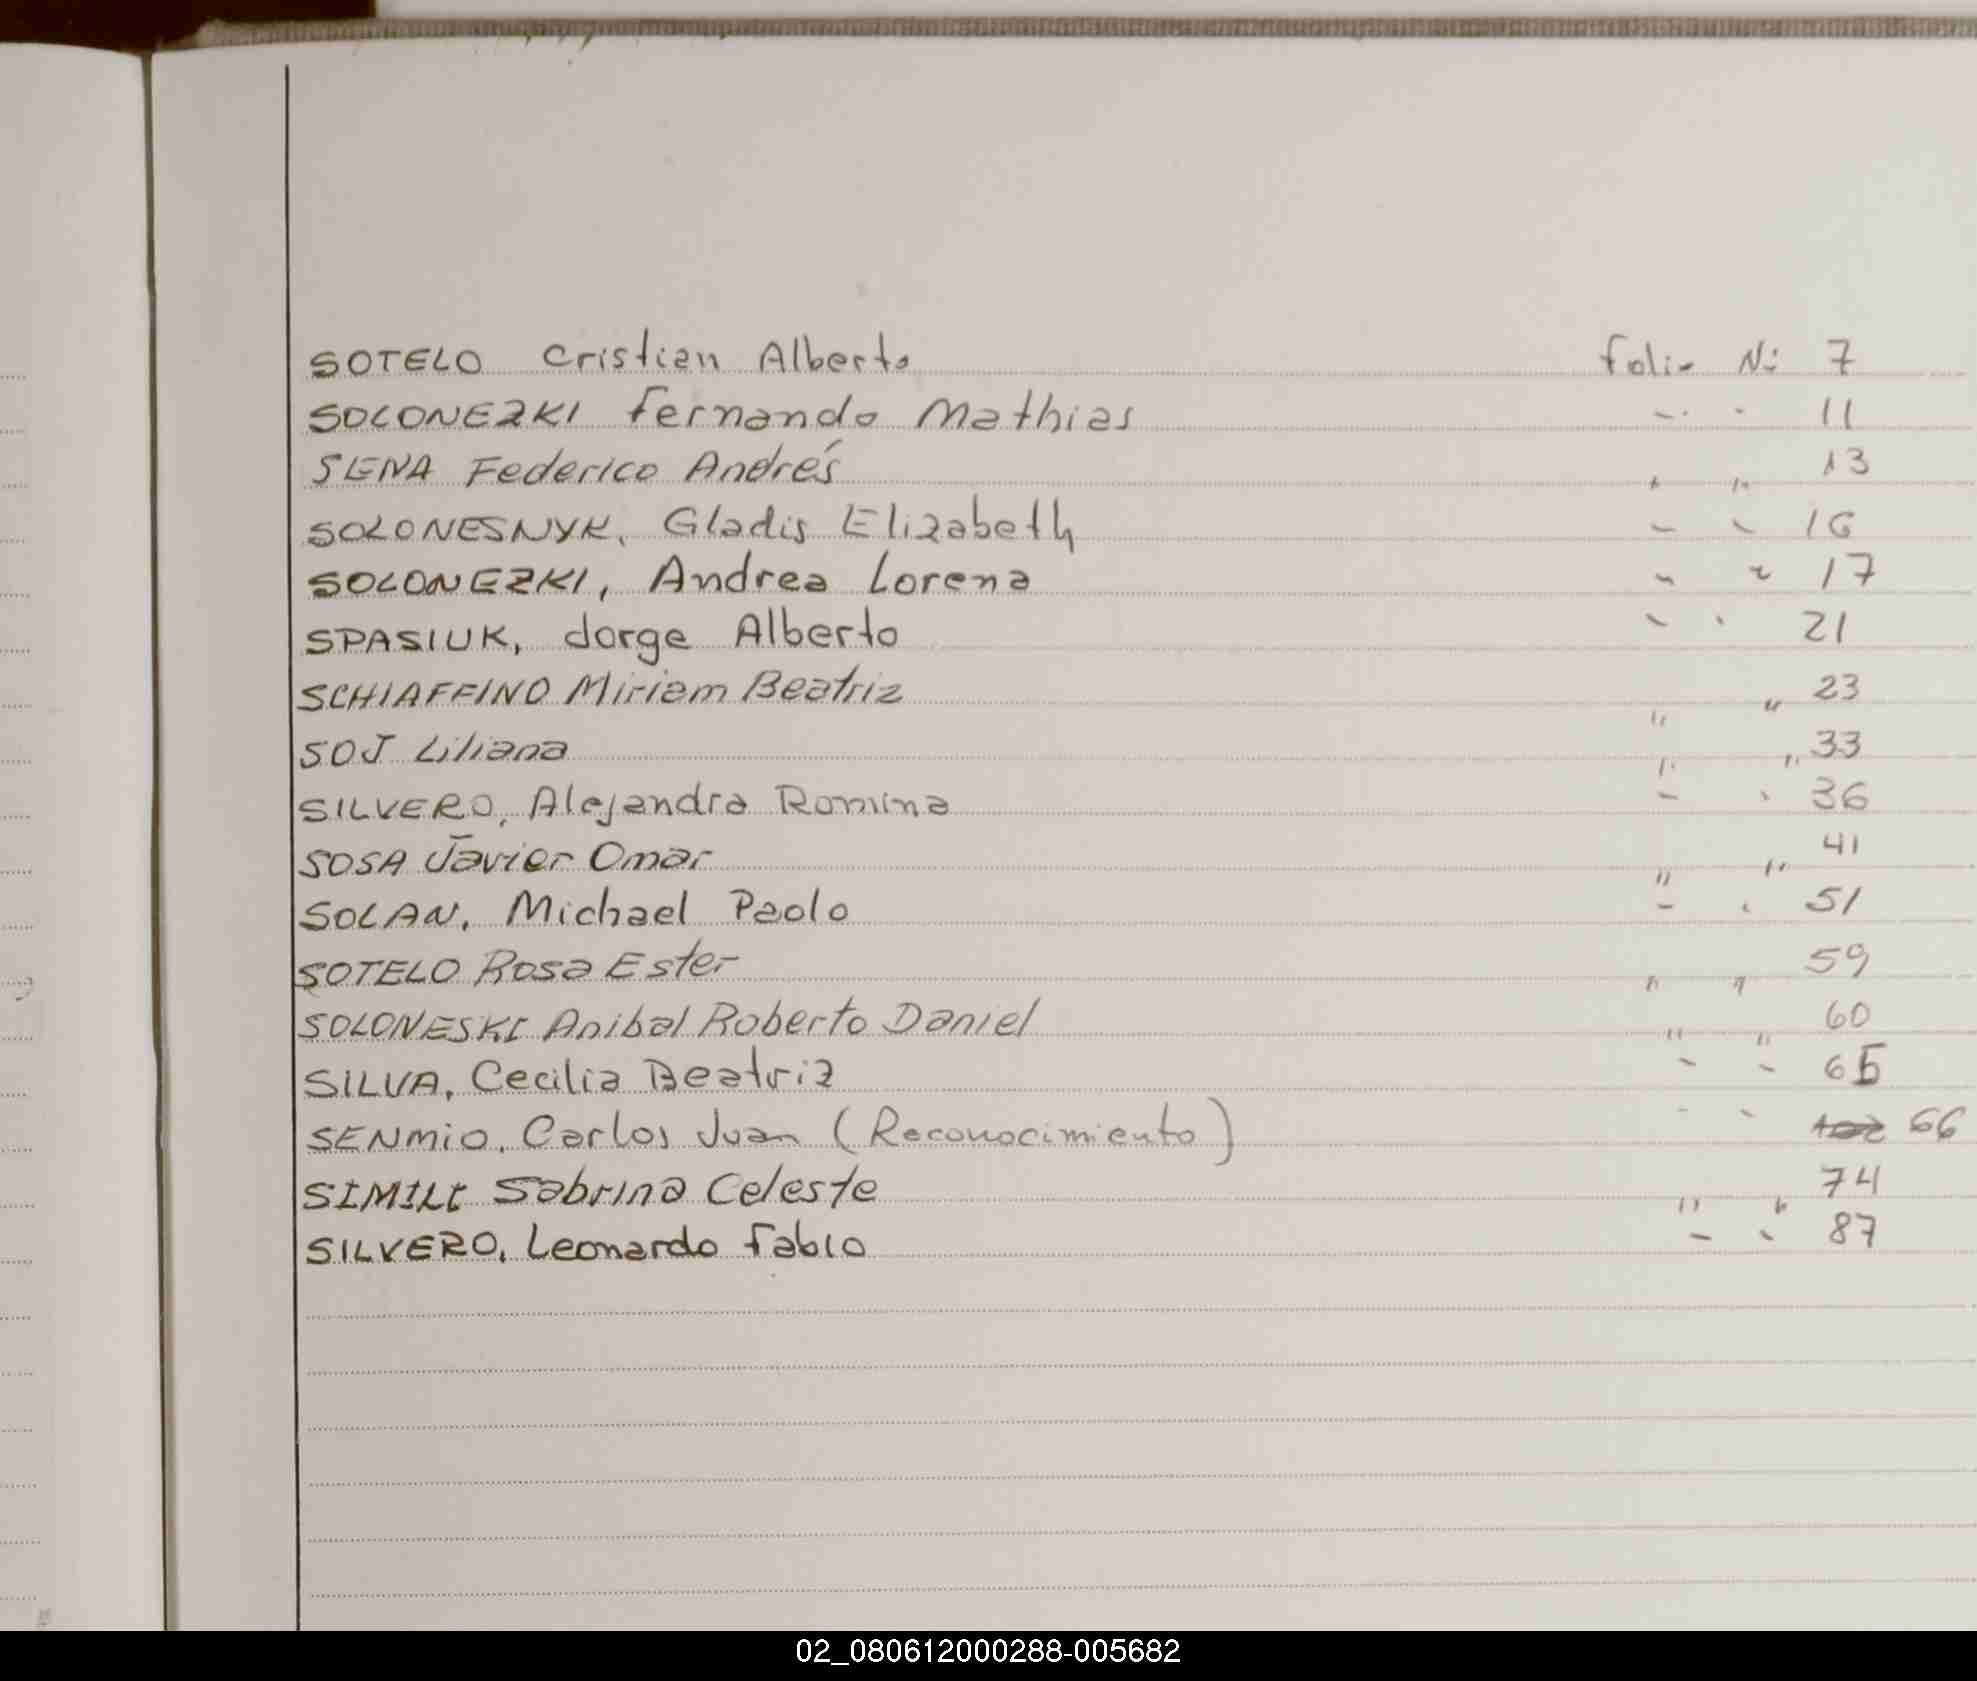 SOTELO Cristian Alberto Folio Nº 7
SOLONEZKI Fernando Mathias " " 11
SENA Federico Andrés " " 13
SOLONESNYK, Gladis Elizabeth " " 16
SOLONEZKI, Andrea Lorena " " 17
SPASIUK, Jorge Alberto " " 21
SCHIAFFINO Miriam Beatriz " " 23
SOJ Liliana " " 33
SILVERO, Alejandra Romina " " 36
SOSA Javier Omar " " 41
SOLAN, Michael Paolo " " 51
SOTELO Rosa Ester " " 59
SOLONESKI Anibal Roberto Daniel " " 60
SILVA, Cecilia Beatriz " " 65
SENMIO, Carlos Juan (Reconocimiento) " " 66
SIMILI Sabrina Celeste " " 74
SILVERO, Leonardo Fabio " " 87
02_080612000288-005682